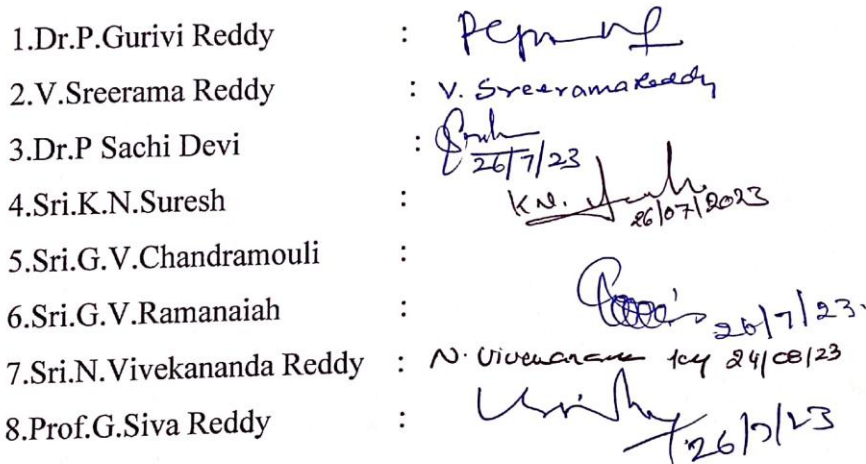 1.Dr.P.Gurivi Reddy :
2.V.Sreerama Reddy : V. SreeramaReddy
3.Dr.P Sachi Devi : 26/7/23
4.Sri.K.N.Suresh : K.N. 26/07/2023
5.Sri.G.V.Chandramouli :
6.Sri.G.V.Ramanaiah : 26/7/23.
7.Sri.N.Vivekananda Reddy : N. 24/08/23
8.Prof.G.Siva Reddy : 26/7/23